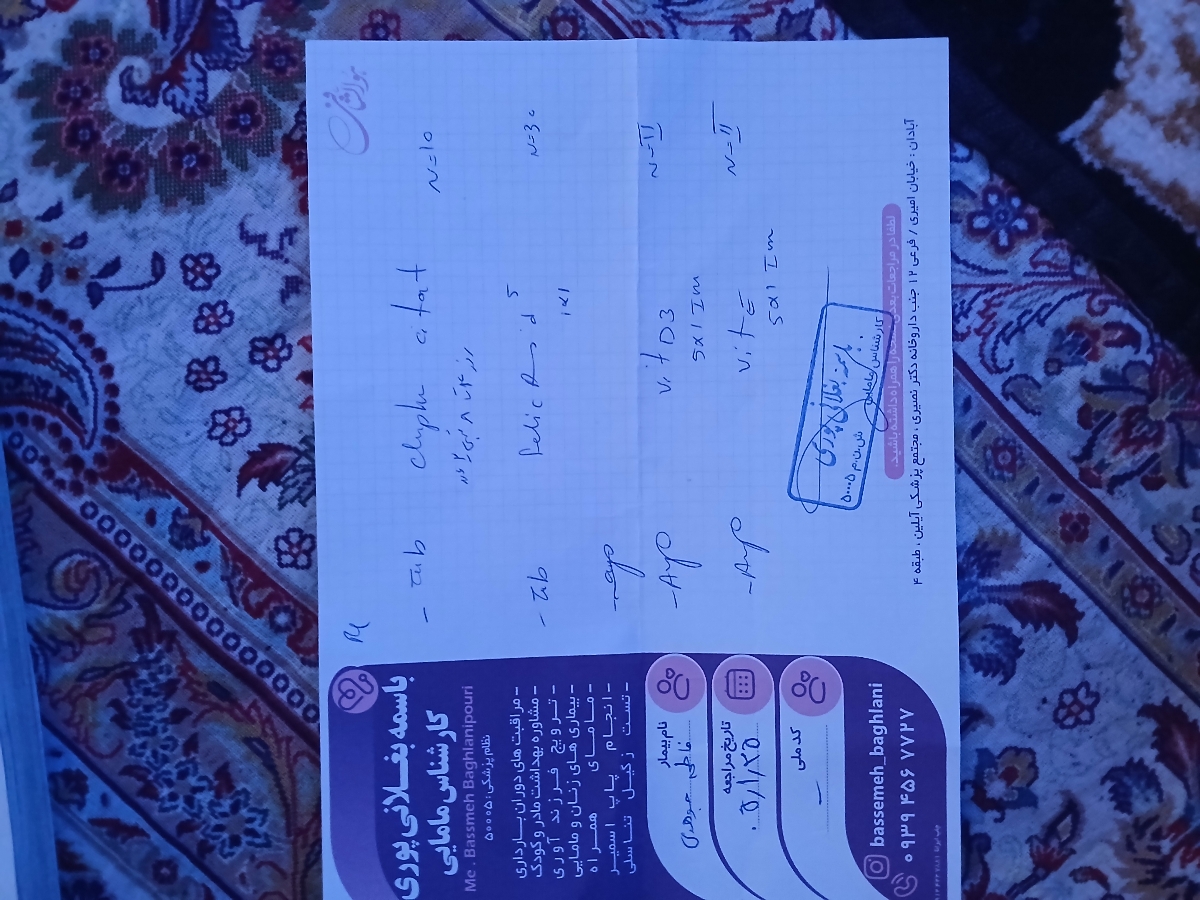 باسمه بغلانی پوری
کارشناس مامایی
Me . Bassmeh Baghlanipouri
نظام پزشکی: ۵۰۰۰۵
- مراقبت های دوران بارداری
- مشاوره بهداشت مادر و کودک
- ترویج فرزند آوری
- بیماری های زنان و مامایی
- مامای همراه
- انجام پاپ اسمیر
- تست زگیل تناسلی
نام بیمار
تاریخ مراجعه
کد ملی
bassemeh_baghlani
۰۹۳۹ ۴۵۶ ۷۷۲۷
- Tab N=10
- Tab Folic Acid 5 N=30
1x1
- Amp Vit D3 N=II
5x1 Im
- Amp Vit E N=II
5x1 Im
باسمه بغلانی پوری
کارشناس مامایی
ش.ن.م ۵۰۰۰۵
لطفا در مراجعات بعدی نسخه را همراه داشته باشید.
آبادان : خیابان امیری / فرعی ۱۲ جنب داروخانه دکتر نصیری ، مجتمع پزشکی آیلین ، طبقه ۴